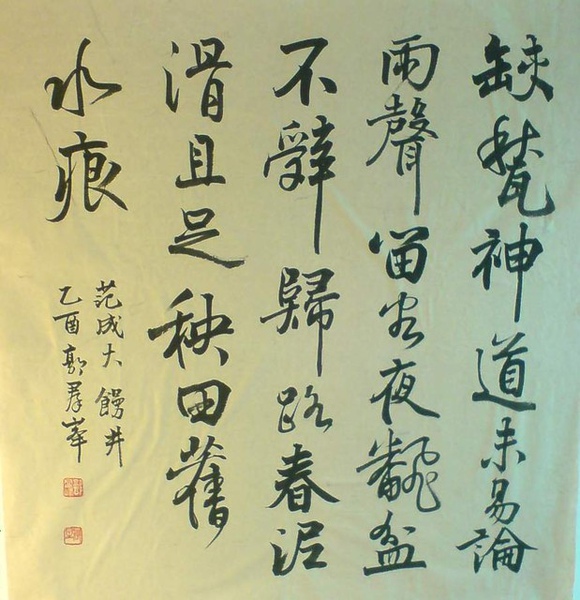 缺甃神道未易論
雨聲留客夜飜盆
不辭歸路春泥
滑且足秧田舊
水痕
范成大 饅井
乙酉郭羣峯